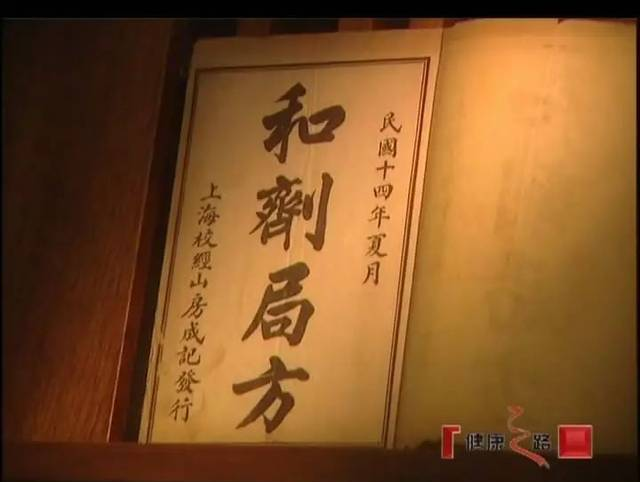 民國十四年夏月
和劑局方
上海校經山房成記發行
健康之路